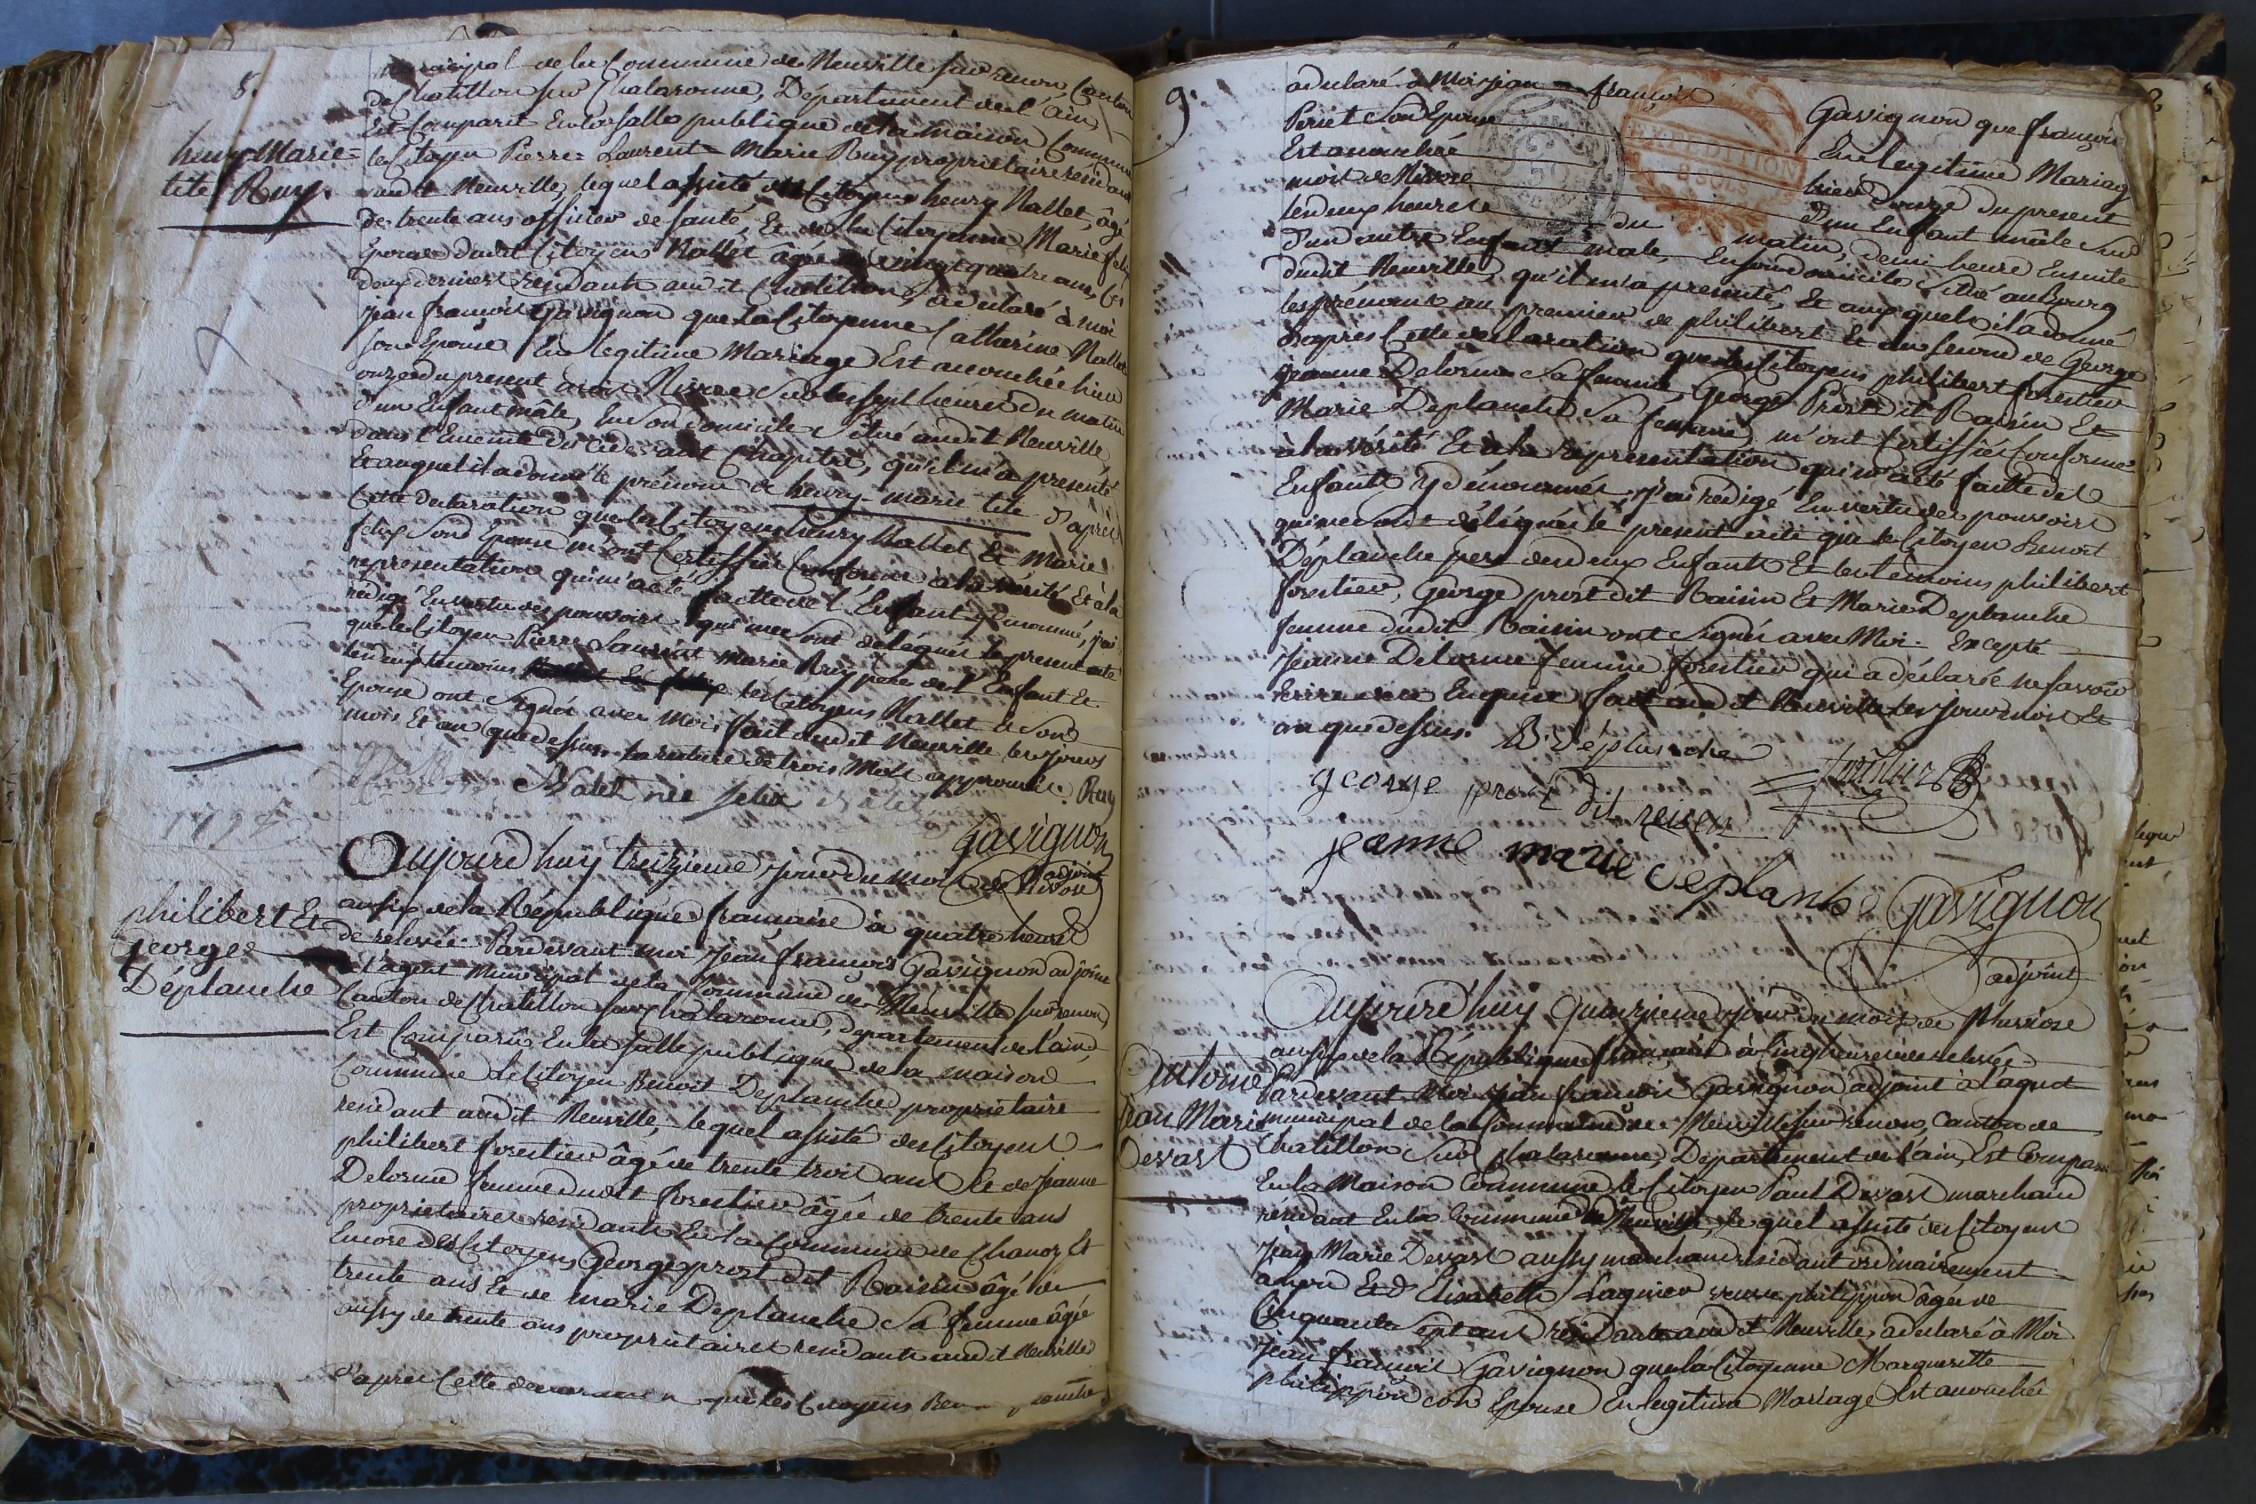 8.
henry Marie=
tite Ruy.
municipal de la Commune de Neuville sur renon Canton
de Chatillon sur Chalaronne, Département de l'ain
Est Comparu En la salle publique de la maison Commune
le Citoyen Pierre= Laurent= Marie Ruy propriétaire residant
audit Neuville, lequel assisté des Citoyens henry Rallet, âgé
de trente ans officier de santé, Et de la Citoyenne Marie felix
Epouse dudit Citoyen Rallet âgée de vingt quatre ans, les
deux derniers residants audit Chatillon, a declaré à moi
jean françois Gavignon que la Citoyenne Catherine Rallet
son Epouse En legitime Mariage Est accouchée hier
onze du present mois Nivose sur les sept heures du matin
d'un Enfant mâle, En son domicile situé audit Neuville,
dans l'Enceinte du Cidevant Chapitre, qu'il m'a presenté
Et auquel il a donné le prénom de henry- marie tite d'après
Cette declaration que les Citoyens henry Rallet Et Marie
felix son Epouse m'ont Certiffié Conforme à la vérité Et à la
representation qui m'a été faitte de l'Enfant y denommé, j'ai
redigé En vertu des pouvoirs qui me sont delégués le present acte
que le Citoyen Pierre Laurent Marie Ruy père de l'Enfant Et
les deux temoins les Citoyens Rallet Et son
Epouse ont signés avec moi, fait audit Neuville les jours
mois Et an que dessus. la rature de trois Mots approuvée. Ruy
felix
Gavignon
adjoint
philibert Et
George
Déplanche
Aujourd'huy treizieme jour du mois de Nivose
an six de la République française à quatre heures
de relevée. Pardevant moi jean françois Gavignon adjoint
à l'agent municipal de la Commune de Neuville sur renon
Canton de Chatillon sur Chalaronne, departement de l'ain,
Est Comparû En la salle publique de la maison
Commune le Citoyen Benoit Deplanche propriétaire
residant audit Neuville, lequel assisté des Citoyens
philibert forestier âgé de trente trois ans Et de Jeanne
Delorme femme dudit forestier âgée de trente ans
propriétaires residants En la Commune de Chanoz Et
Encore des Citoyens George prost dit Raisin âgé de
trente ans Et de marie Deplanche sa femme âgée
aussy de trente ans proprietaires residants audit Neuville
d'après Cette declaration que les Citoyens
9.
a declaré à Moi jean françois Gavignon que françoise
Periet son Epouse En legitime Mariage
Est accouchée hier douze du present
mois de Nivose d'un Enfant mâle sur
les deux heures du matin, demi heure Ensuite
d'un autre Enfant mâle, En son domicile situé au Bourg
dudit Neuville, qu'il m'a presenté, Et auxquels il a donné
les prénoms au premier de philibert Et au second de George
d'après Cette declaration que les Citoyens philibert forestier
jeanne Delorme sa femme, George Prost dit Raisin Et
Marie Deplanche sa femme, m'ont Certiffié Conforme
à la vérité Et à la representation qui m'a été faitte des
Enfants y dénommés, j'ai redigé En vertu des pouvoirs
qui me sont délégués le present acte que le Citoyen Benoit
Déplanche pere des deux Enfants Et les temoins philibert
forestier, George prost dit Raisin Et Marie Deplanche
femme dudit Raisin ont signés avec Moi. Excepté
Jeanne Delorme femme forestier qui a déclaré ne savoir
Ecrire de ce Enquise fait audit Neuville les jour mois Et
an que dessus.
B. Déplanche
george prost dit reisen
jeanne marie deplanche
Gavignon
adjoint
EXPEDITION
8 SOLS
Antoine
Jean Marie
Devast
Aujourd'huy quinzieme jour du mois de Nivose
an six de la République française à Cinq heures de relevée
Pardevant Moi jean françois Gavignon adjoint à l'agent
municipal de la Commune de Neuville sur renon, Canton de
Chatillon sur Chalaronne, Departement de l'ain, Est Comparu
En la Maison Commune le Citoyen Paul Devast marchand
résidant En la Commune de Neuville, lequel assisté des Citoyens
Jean Marie Devast aussy marchand residant ordinairement
a lyon Et d'Elisabeth Lagnier veuve philippon âgée de
Cinquante sept ans residante audit Neuville, a declaré à Moi
jean françois Gavignon que la Citoyenne Margueritte
philippon son Epouse En legitime Mariage Est accouchée